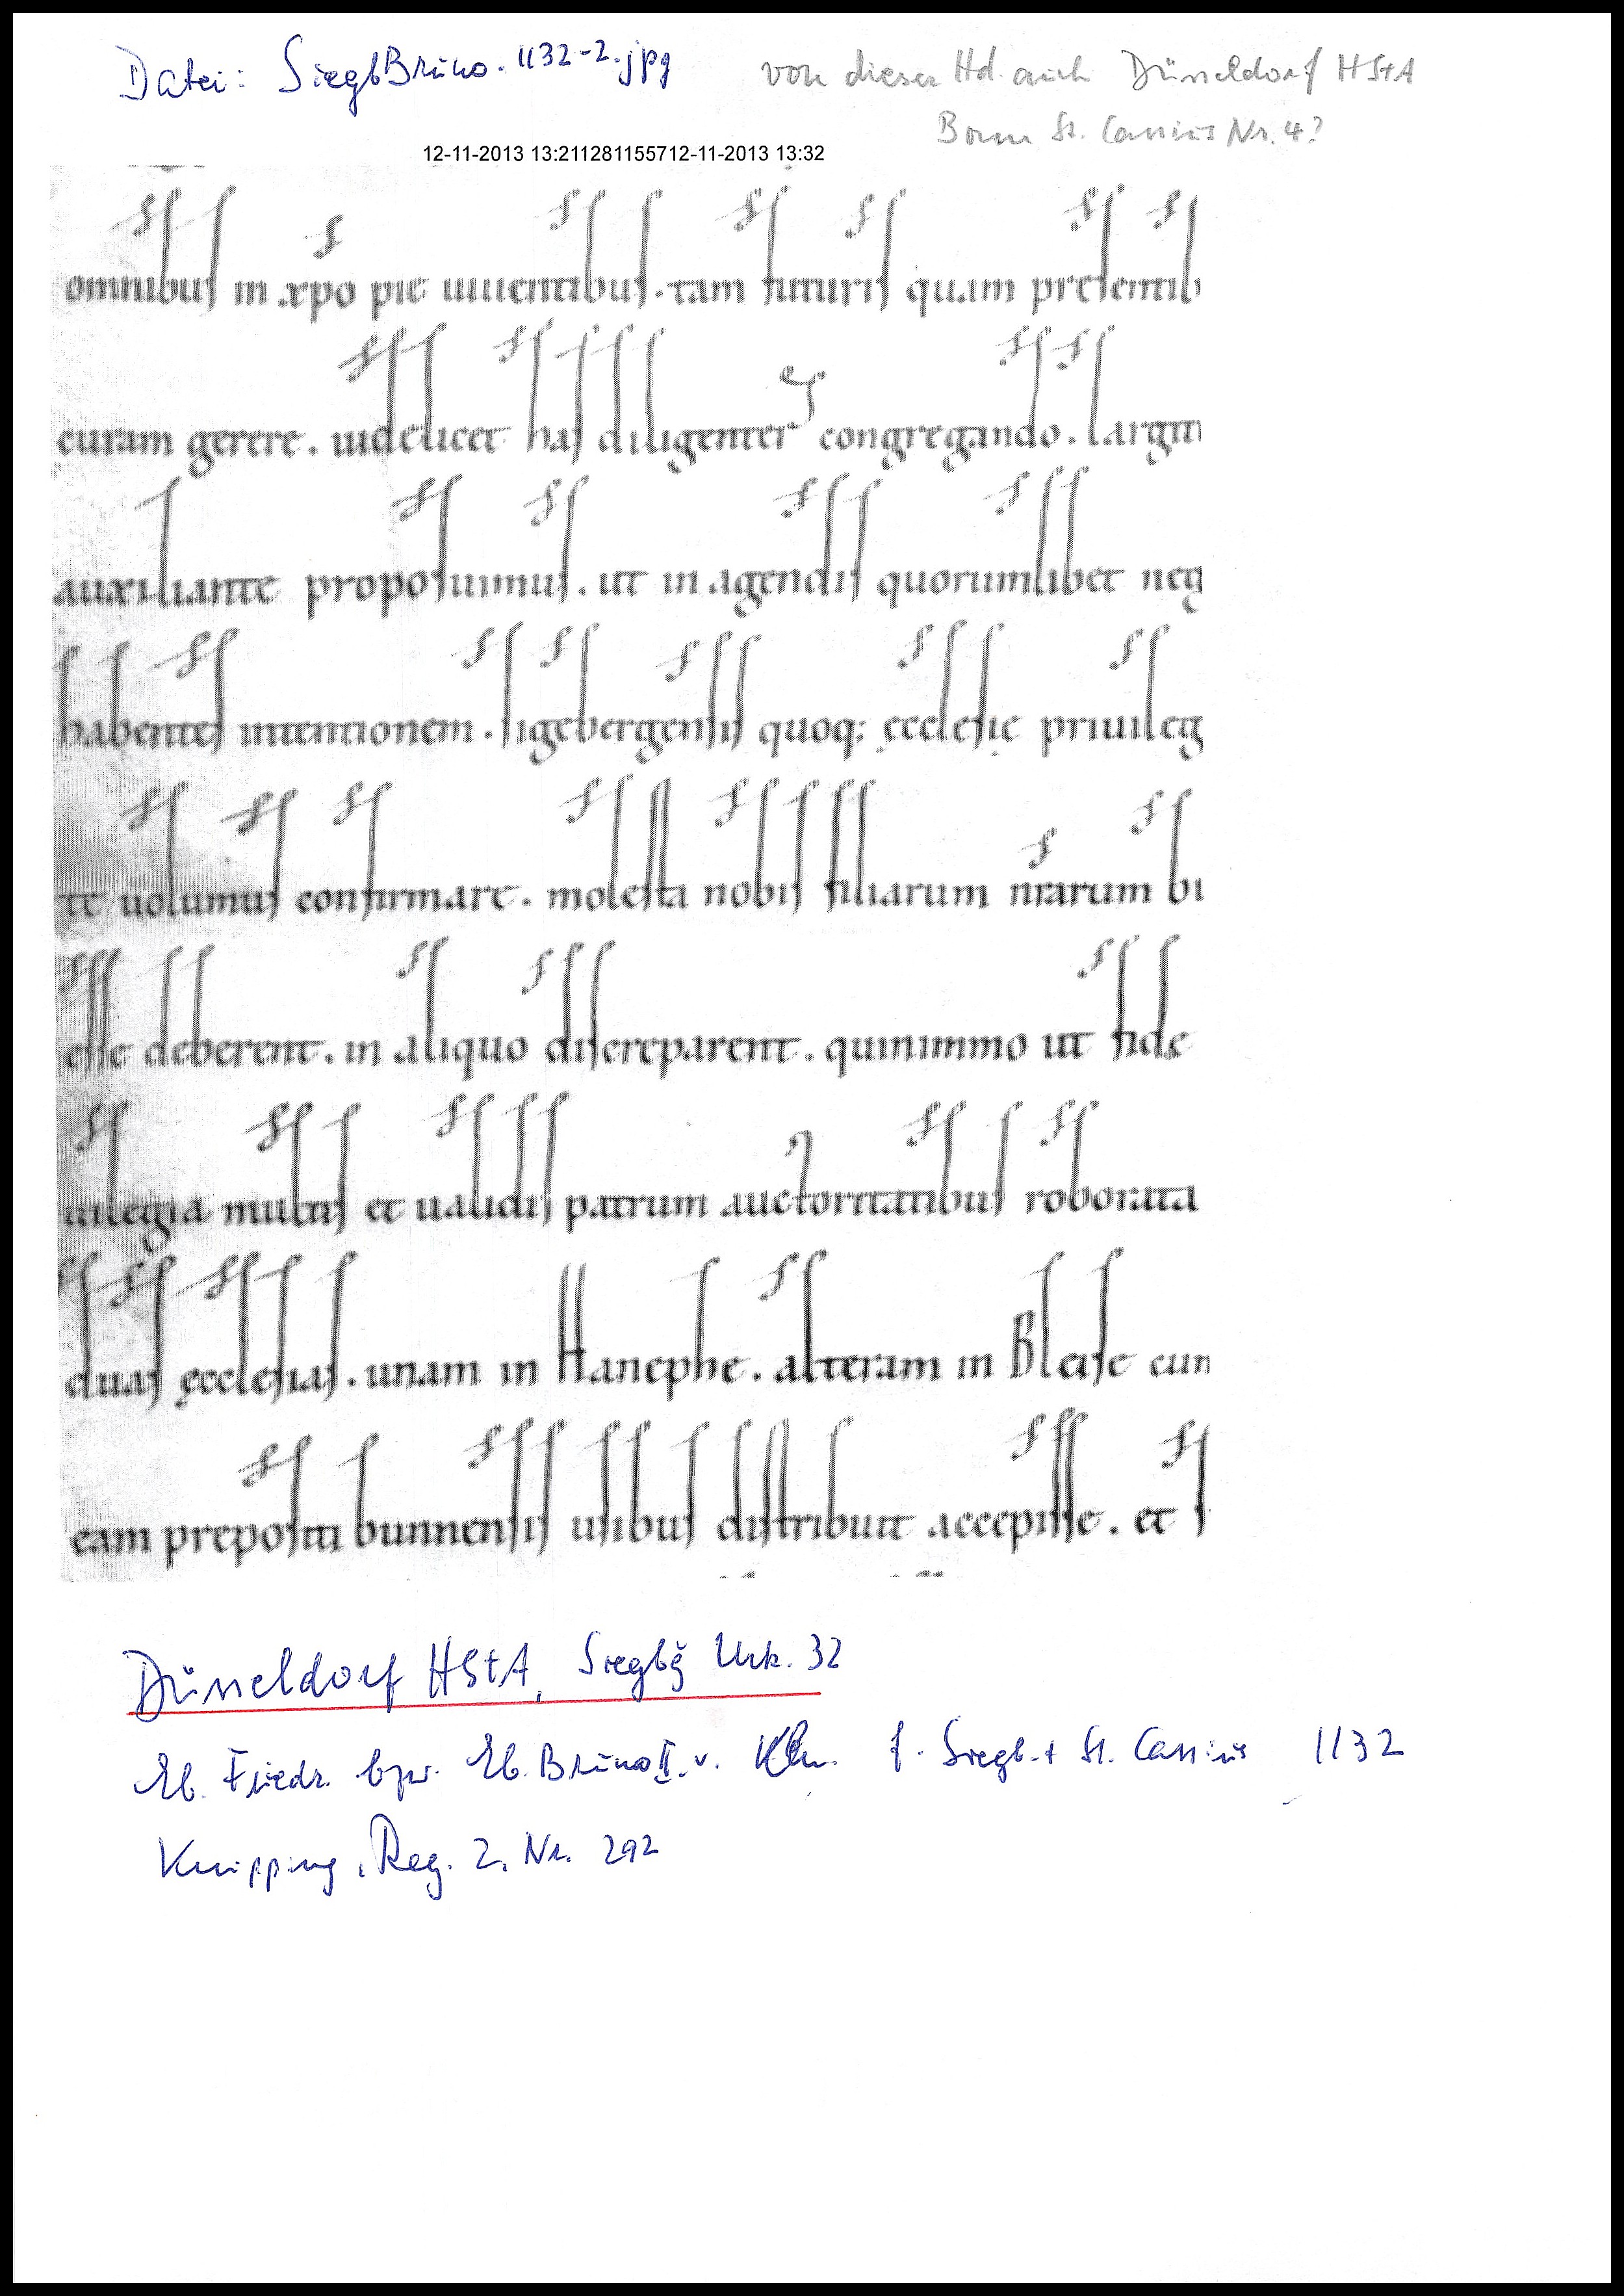 Datei: SieglBruno.1132-2.jpg
von dieser Hd. auch Düsseldorf HStA
Bonn St. Cassius Nr. 4?
12-11-2013 13:211281155712-11-2013 13:32
omnibus in xpo pie uiuentibus. tam futuris quam presentib
curam gerere. uidelicet has diligenter congregando. largiti
auxiliante proposuimus. ut in agendis quorumlibet neg
habentes intentionem. sigebergensis quoq; ęcclesię priuileg
te uolumus confirmare. molesta nobis filiarum nrarum bi
esse deberent. in aliquo discreparent. quinimmo ut fide
uilegia multis et ualidis patrum auctoritatibus roborata
duas ęcclesias. unam in Hanephe. alteram in Bleise cun
eam prepositi bunnensis usibus distribuit accepisse. et s
Düsseldorf HStA, Siegbg Urk. 32
Eb. Friedr. bzw. Eb. Bruno II. v. Köln f. Siegb. + St. Cassius 1132
Knipping, Reg. 2, Nr. 292